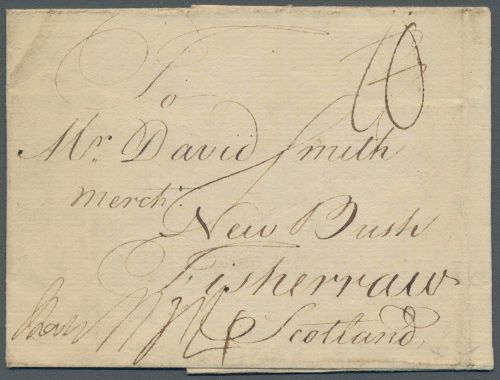 To
10
Mr. David Smith
Mercht.
New Bush
Fisherraw
Scotland